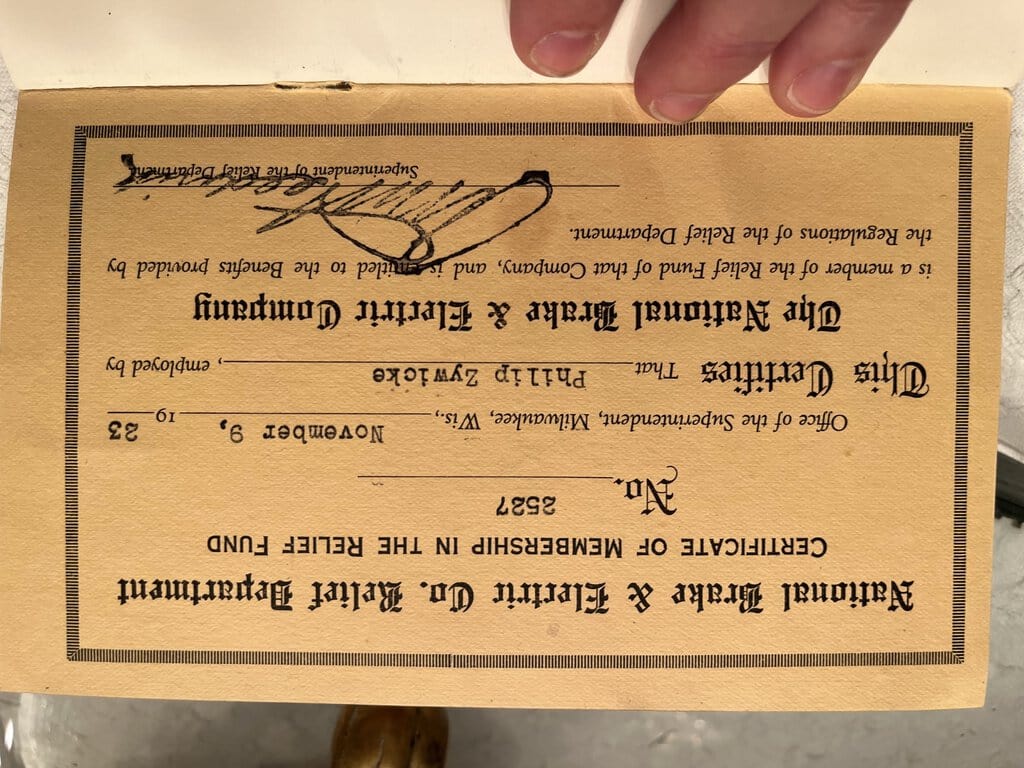 National Brake & Electric Co. Relief Department
CERTIFICATE OF MEMBERSHIP IN THE RELIEF FUND
No. 2527
Office of the Superintendent, Milwaukee, Wis., November 9, 19 23
This Certifies That Philip Zywicke, employed by
The National Brake & Electric Company
is a member of the Relief Fund of that Company, and is entitled to the Benefits provided by
the Regulations of the Relief Department.
Superintendent of the Relief Department.